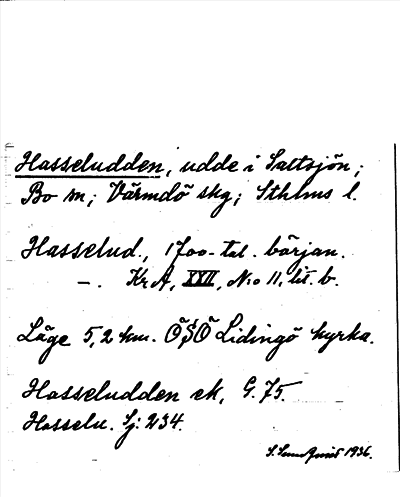 Hasseludden, udde i Saltsjön;
Bo sn; Värmdö skg; Sthlms l.
Hasselud., 1700-tal. början.
—. KrA, XXII, N:o 11, lit. b.
Läge 5,2 km. ÖSÖ Lidingö kyrka.
Hasseludden ek, G. 75.
Hasselu. Sj: 234.
1936.